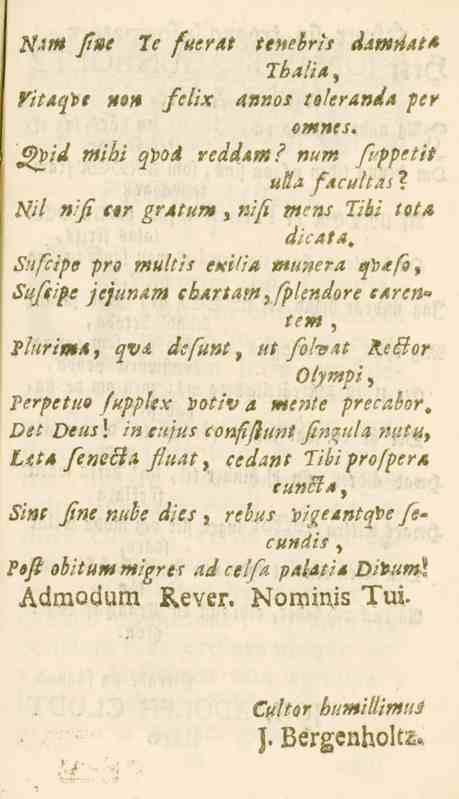 Nam sine Te fuerat tenebris damnata
Thalia,
Vitaqve non felix annos toleranda per
omnes.
Qvid mihi qvod reddam? num suppetit
ulla facultas?
Nil nisi cor gratum, nisi mens Tibi tota
dicata.
Suscipe pro multis exilia munera qvæso,
Suscipe jejunam chartam, splendore caren-
tem,
Plurima, qvæ desunt, ut solvat Rector
Olympi,
Perpetuo supplex votiva mente precabor.
Det Deus! in cujus consistunt singula nutu,
Læta senecta fluat, cedant Tibi prospera
cuncta,
Sint sine nube dies, rebus vigeantqve se-
cundis,
Post obitum migres ad celsa palatia Divum!
Admodum Rever. Nominis Tui.
Cultor humillimus
J. Bergenholtz.